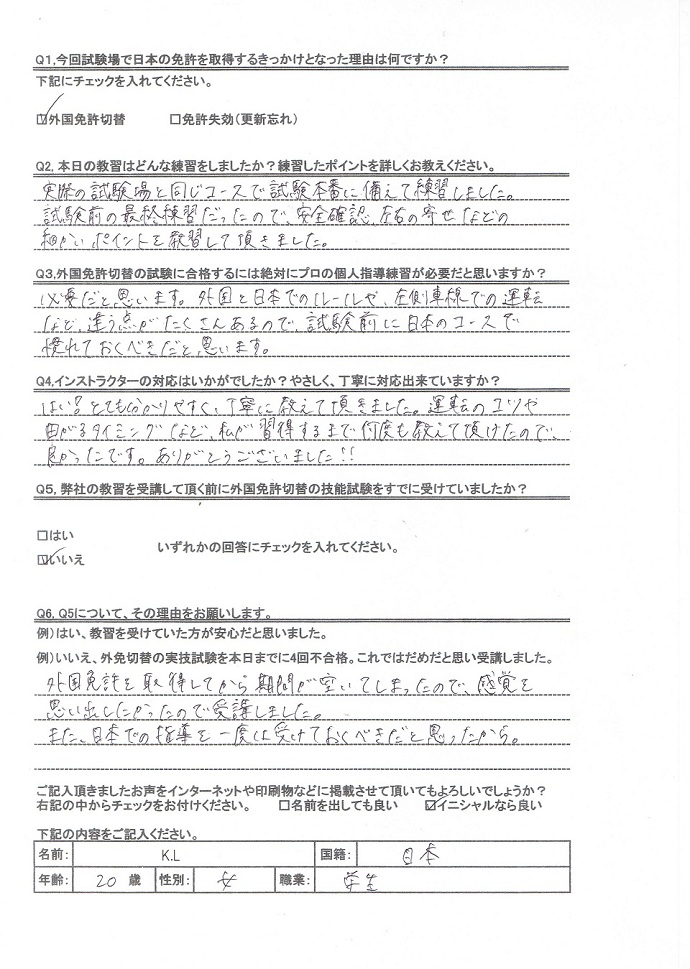 Q1,今回試験場で日本の免許を取得するきっかけとなった理由は何ですか？
下記にチェックを入れてください。
☑外国免許切替 □免許失効(更新忘れ)
Q2, 本日の教習はどんな練習をしましたか？練習したポイントを詳しくお教えください。
実際の試験場と同じコースで試験本番に備えて練習しました。
試験前の最終練習だったので、安全確認、左右の寄せなどの
細かいポイントを教習して頂きました。
Q3,外国免許切替の試験に合格するには絶対にプロの個人指導練習が必要だと思いますか？
必要だと思います。外国と日本でのルールや、左側車線での運転
など、違う点がたくさんあるので、試験前に日本のコースで
慣れておくべきだと思います。
Q4,インストラクターの対応はいかがでしたか？やさしく、丁寧に対応出来ていますか？
はい！とても分かりやすく、丁寧に教えて頂きました。運転のコツや
曲がるタイミングなど、私が習得するまで何度も教えて頂けたので、
良かったです。ありがとうございました!!
Q5, 弊社の教習を受講して頂く前に外国免許切替の技能試験をすでに受けていましたか？
□はい
いずれかの回答にチェックを入れてください。
☑いいえ
Q6, Q5について、その理由をお願いします。
例)はい、教習を受けていた方が安心だと思いました。
例)いいえ、外免切替の実技試験を本日までに4回不合格。これではだめだと思い受講しました。
外国免許を取得してから期間が空いてしまったので、感覚を
思い出したかったので受講しました。
また、日本での指導を一度は受けておくべきだと思ったから。
ご記入頂きましたお声をインターネットや印刷物などに掲載させて頂いてもよろしいでしょうか？
右記の中からチェックをお付けください。 □名前を出しても良い ☑イニシャルなら良い
下記の内容をご記入ください。
名前: K.L 国籍: 日本
年齢: 20 歳 性別: 女 職業: 学生